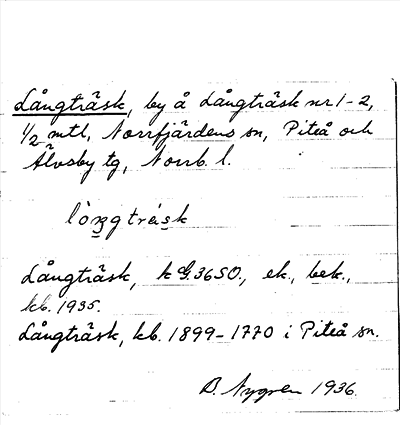 Långträsk, by å Långträsk nr 1-2,
1/2 mtl, Norrfjärdens sn, Piteå och
Älvsby tg, Norrb. l.
lòngtràsk
Långträsk, k G.36SO., ek., bek.,
kb. 1935.
Långträsk, kb. 1899-1770 i Piteå sn.
B. Nygren 1936.